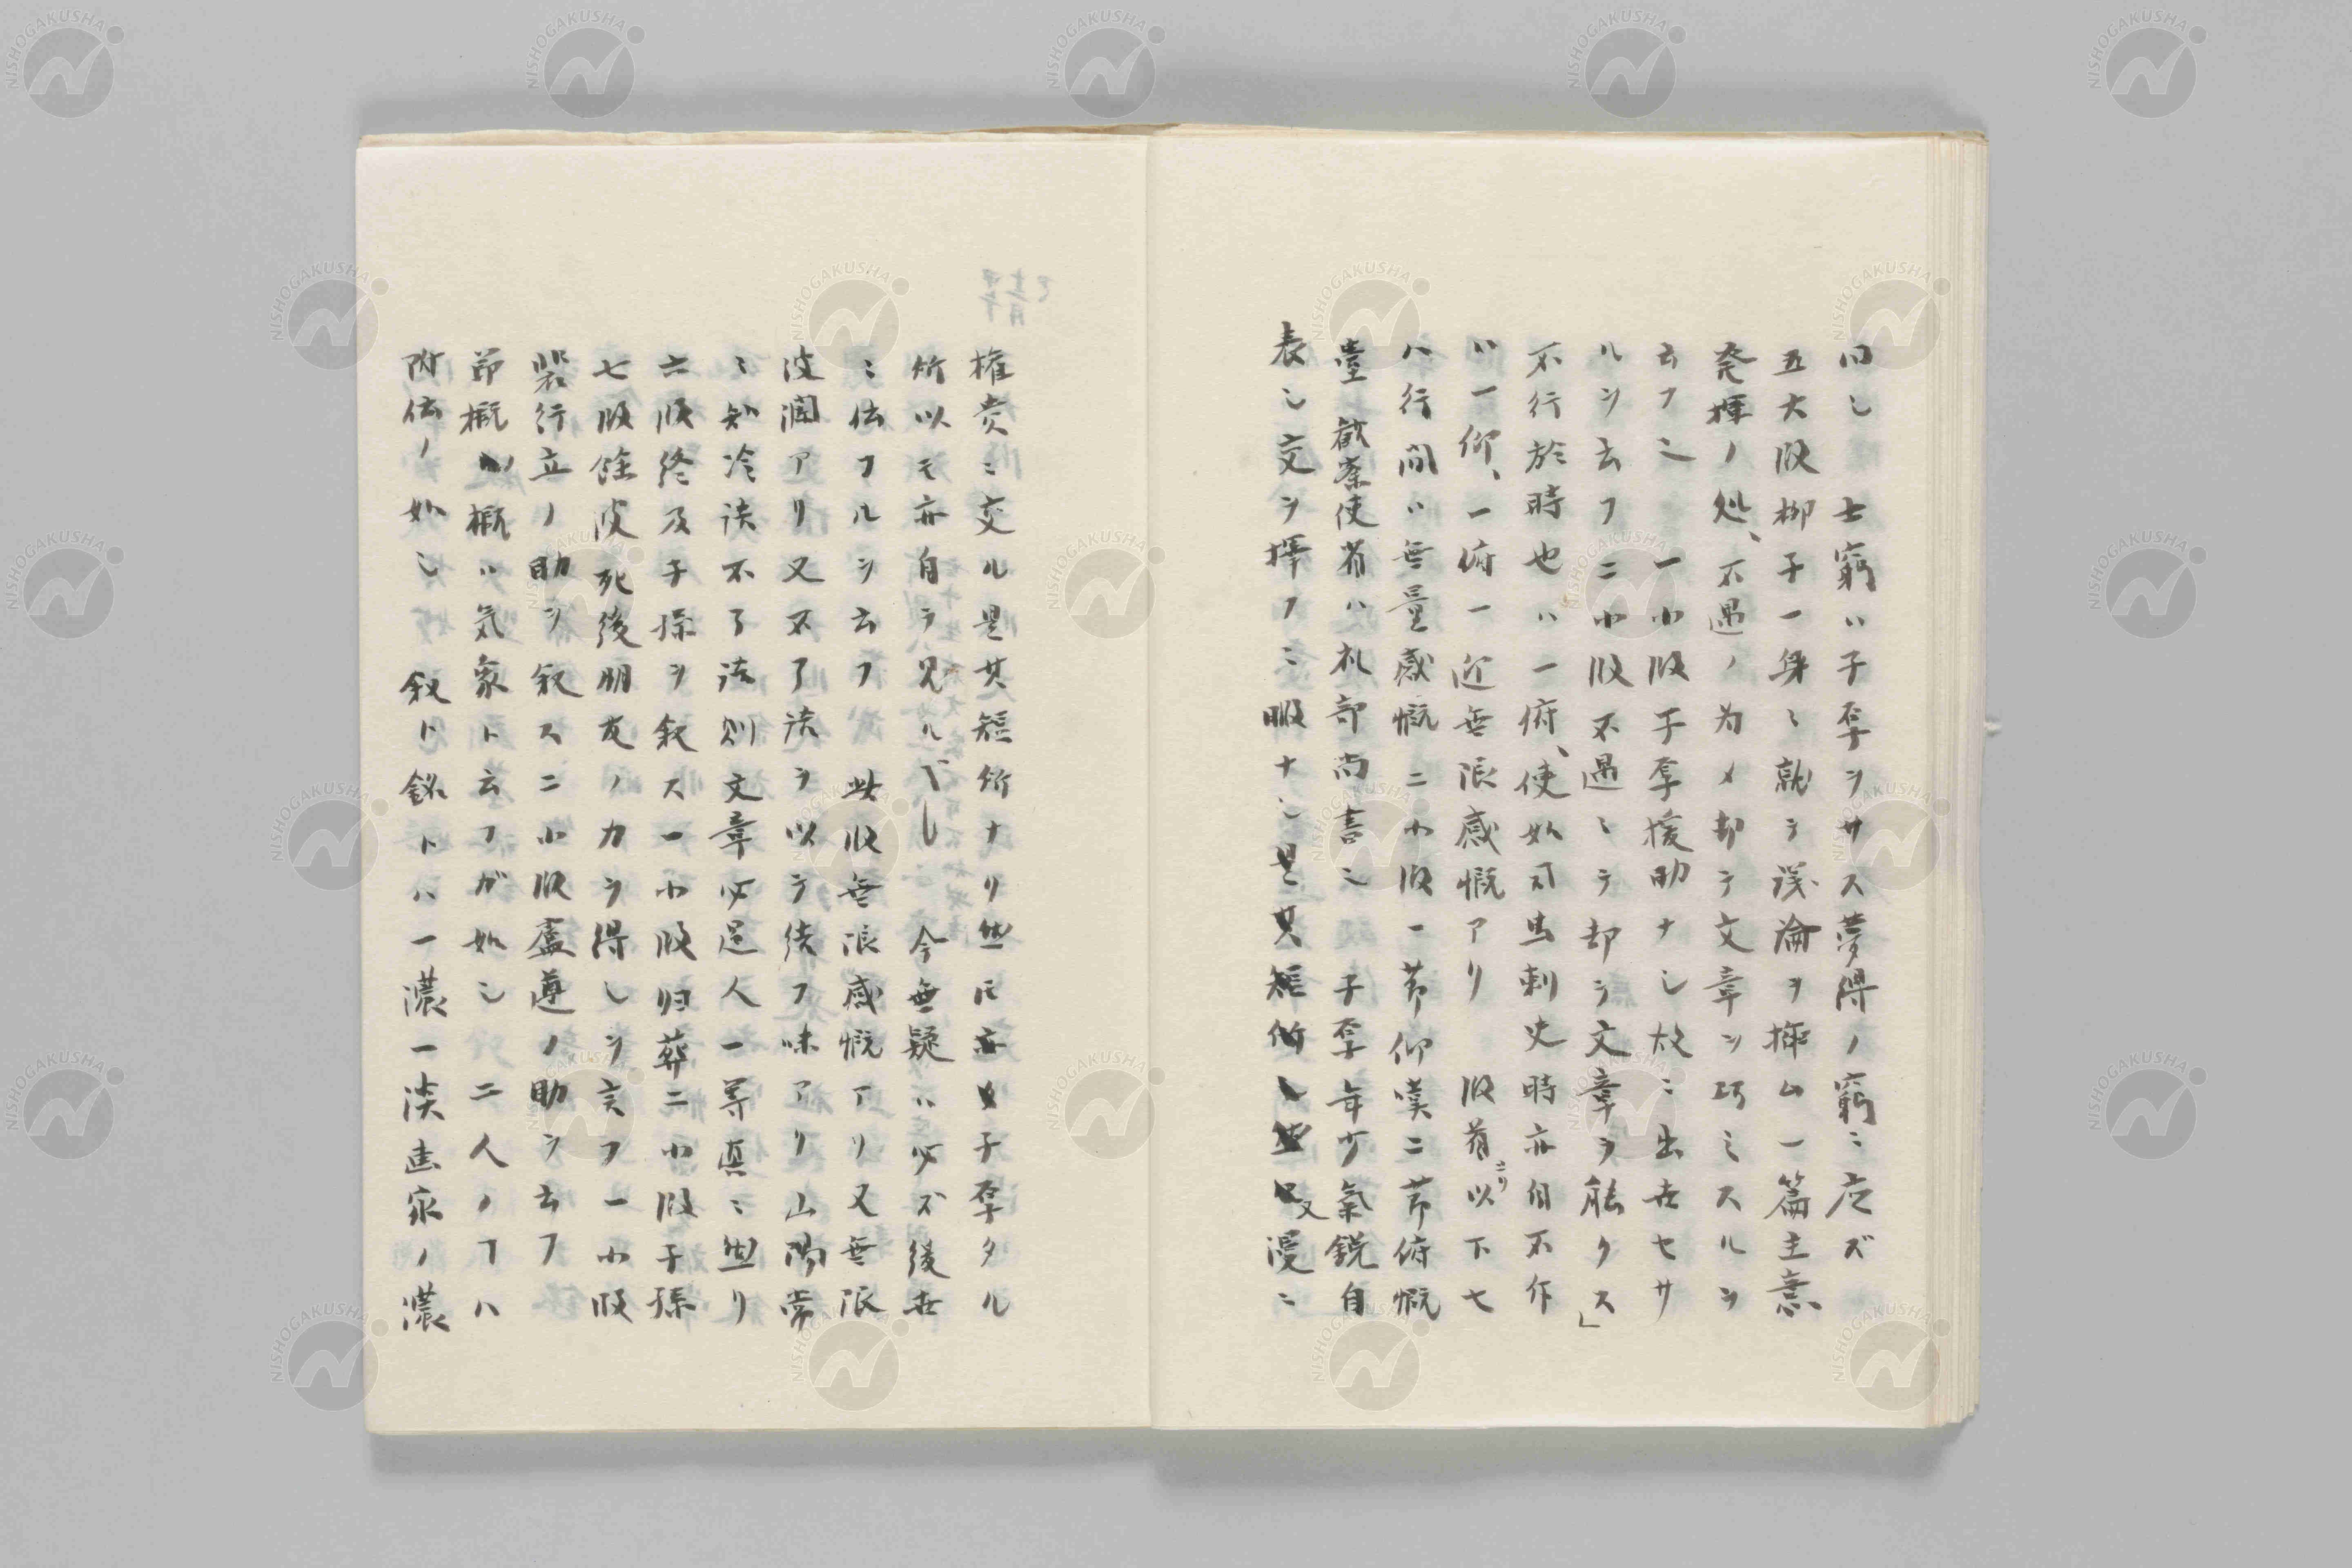 同し　士窮ハ子厚ヲサス夢得ノ窮ニ应ズ
五大段柳子一身ニ就テ議論ヲ極ム一篇主意
発揮ノ処、不遇ノ为メ却テ文章ヲ巧ミスルヲ
云フ　一小段子厚援助ナし故ニ出世セサ
ルヲ云フ二小段不遇ニテ却テ文章ヲ能クス」
不行於時也ハ一俯、使如司馬刺史時亦自不作
ハ一仰、一俯一迎無限感慨アリ　段首ヨリ以下七
八行間ハ無量感慨二小段一节仰嘆二节俯慨
臺　歓奈使省ハ礼部尚書　子厚年少氣鋭自
表シ文ヲ揮フニ暇ナシ是其短所　然　又漫ニ
権貴ニ交ル是其短所ナリ然に亦子厚タル
所以モ亦自ラ見ルべし　今無疑ハ必ズ後世
ニ伝フルヲ云フ　此段無限感慨アリ又無限
波瀾アリ又不了法ヲ以テ結フ味アリ山陽常
ニ知冷淡不了法則文章必逼人一等真ニ然リ
六段終及子孫ヲ叙ス一小段归葬二小段子孫
七段餘波死後朋友ノカヲ得しヲ言フ一小段
裴行立ノ助ヲ叙ス二小段盧遵ノ助ヲ云フ
節概　概ハ気象ト云フガ如シ　二人ノフハ
附伝ノ如シ　叙ト銘トハ一濃一淡画家ノ濃